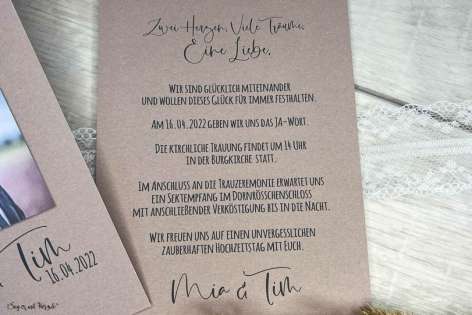 Zwei Herzen. Viele Träume.
Eine Liebe.
Wir sind glücklich miteinander
und wollen dieses Glück für immer festhalten.
Am 16.04.2022 geben wir uns das Ja-Wort.
Die kirchliche Trauung findet um 14 Uhr
in der Burgkirche statt.
Im Anschluss an die Trauzeremonie erwartet uns
ein Sektempfang im Dornrösschenschloss
mit anschließender Verköstigung bis in die Nacht.
Wir freuen uns auf einen unvergesslichen
zauberhaften Hochzeitstag mit Euch.
Mia & Tim
Tim
16.04.2022